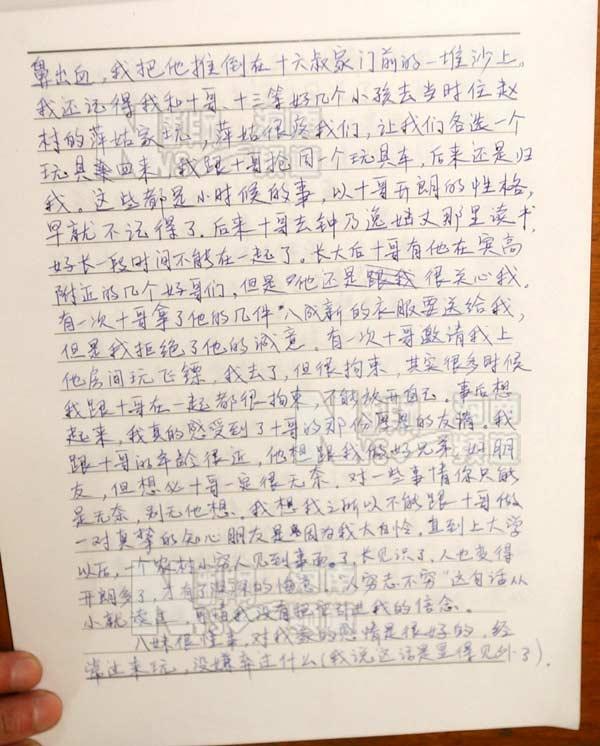 鼻出血,我把他推倒在十六叔家门前的一堆沙上。
我还记得我和十哥、十三等好几个小孩去当时位赵
村的萍姑家玩,萍姑很疼我们,让我们各选一个
玩具回来,我跟十哥抢同一个玩具车,后来还是归
我。这些都是小时候的事,以十哥开朗的性格,
早就不记得了。后来十哥去钟乃逸姑丈那里读书,
好长一段时间不能在一起了。长大后十哥有他在实高
附近的几个好哥们,但是他还是跟我很关心我。
有一次十哥拿了他的几件八成新的衣服要送给我,
但是我拒绝了他的诚意。有一次十哥邀请我上
他房间玩飞镖,我去了,但很拘束,其实很多时候
我跟十哥在一起都很拘束,不能放开自己。事后想
起来,我真的感受到了十哥的那份厚厚的友谊。我
跟十哥的年龄很近,他想跟我做好兄弟、好朋
友,但想必十哥一定很无奈,对一些事情你只能
是无奈,别无他想。我想我之所以不能跟十哥做
一对真挚的知心朋友是因为我太自怜,直到上大学
以后,一个农村小穷人见到事面了,长见识了,人也变得
开朗多了,才有了深深的悔意。"人穷志不穷"这句话从
小就读过,可惜我没有把它引进我的信念。
八妹很懂事,对我家的感情是很好的,经
常过来玩,没嫌弃过什么(我说这话是显得见外了)。